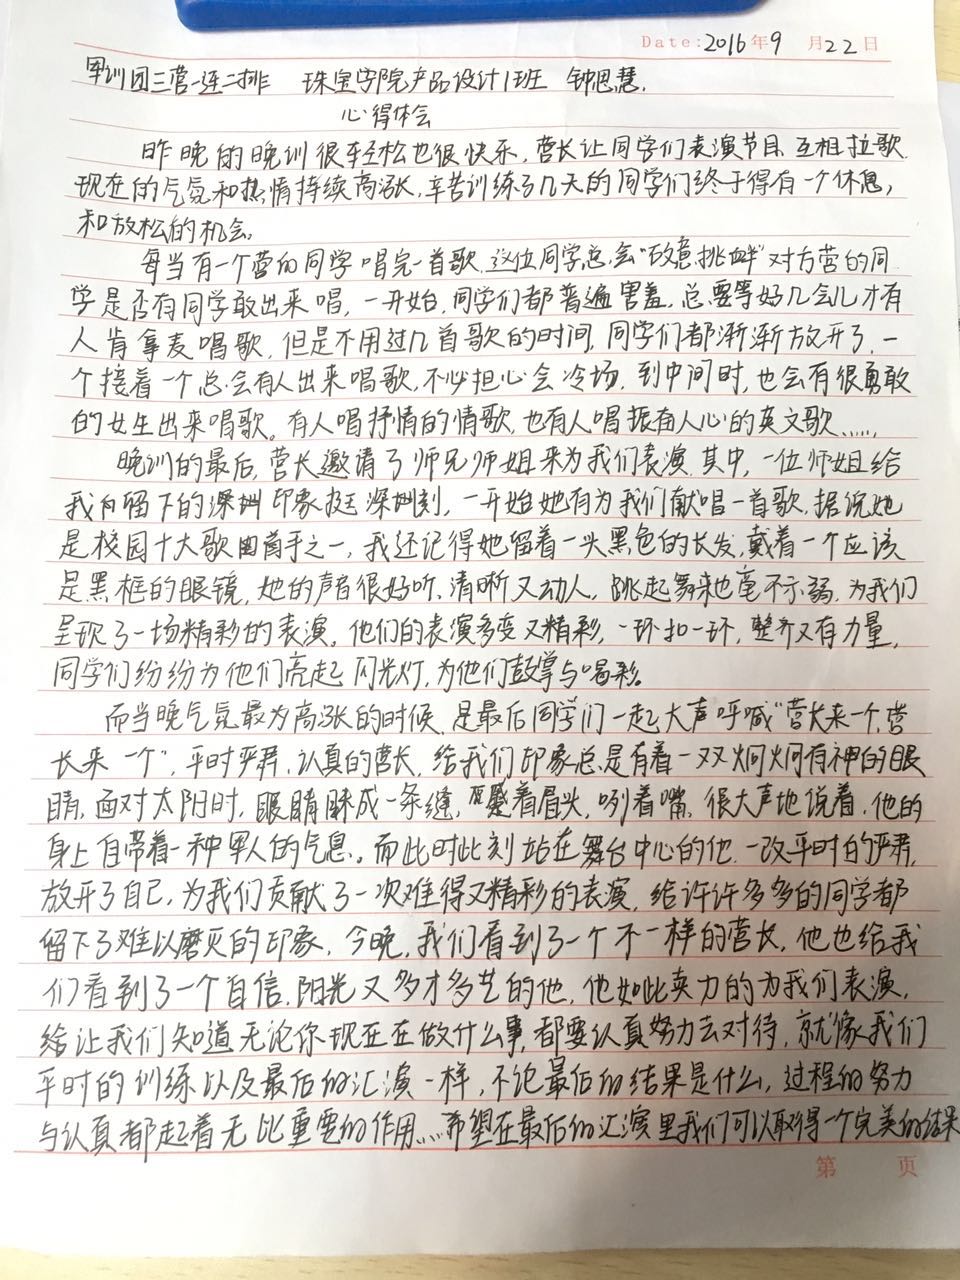 Date: 2016年9月22日
军训团三营一连二排 珠宝学院产品设计1班 钟思慧.
心得体会
昨晚的晚训很轻松也很快乐,营长让同学们表演节目互相拉歌.
现在的气氛和热情持续高涨,辛苦训练了几天的同学们终于得有一个休息,
和放松的机会。
每当有一个营的同学唱完一首歌.这位同学总会“故意挑衅”对方营的同
学是否有同学敢出来唱,一开始,同学们都普遍害羞,总要等好几会儿才有
人肯拿麦唱歌,但是不用过几首歌的时间,同学们都渐渐放开了,一
个接着一个总会有人出来唱歌,不必担心会冷场,到中间时,也会有很勇敢
的女生出来唱歌。有人唱抒情的情歌,也有人唱振奋人心的英文歌……
晚训的最后,营长邀请了师兄师姐来为我们表演.其中,一位师姐给
我们留下的印象挺深刻,一开始她有为我们献唱一首歌,据说她
是校园十大歌曲首手之一,我还记得她留着一头黑色的长发,戴着一个应该
是黑框的眼镜,她的声音很好听,清晰又动人,跳起舞来也毫不示弱,为我们
呈现了一场精彩的表演。他们的表演多变又精彩,一环扣一环,整齐又有力量,
同学们纷纷为他们亮起闪光灯,为他们鼓掌与喝彩。
而当晚气氛最为高涨的时候,是最后同学们一起大声呼喊“营长来一个,营
长来一个”,平时严肃,认真的营长,给我们印象总是有着一双炯炯有神的眼
睛,面对太阳时,眼睛眯成一条缝,蹙着眉头,咧着嘴,很大声地说着,他的
身上自带着一种军人的气息。而此时此刻站在舞台中心的他,一改平时的严肃,
放开了自己,为我们贡献了一次难得又精彩的表演,给许许多多的同学都
留下了难以磨灭的印象,今晚,我们看到了一个不一样的营长,他也给我
们看到了一个自信,阳光又多才多艺的他,他如此卖力的为我们表演,
给让我们知道无论你现在在做什么事,都要认真努力去对待,就像我们
平时的训练以及最后的汇演一样,不论最后的结果是什么,过程的努力
与认真都起着无比重要的作用……希望在最后的汇演里我们可以取得一个完美的结果
第 页